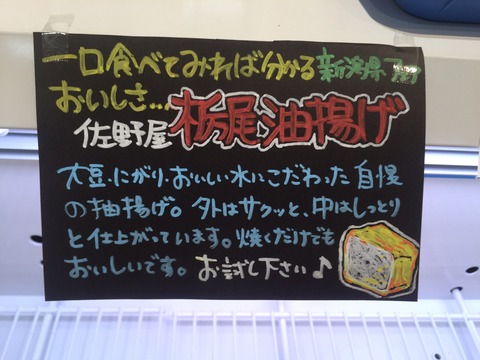 一口食べてみれば分かる新潟県
おいしさ…
佐野屋 栃尾油揚げ
大豆・にがり・おいしい水にこだわった自慢
の油揚げ。外はサクッと、中はしっとり
と仕上がっています。焼くだけでも
おいしいです。お試し下さい♪